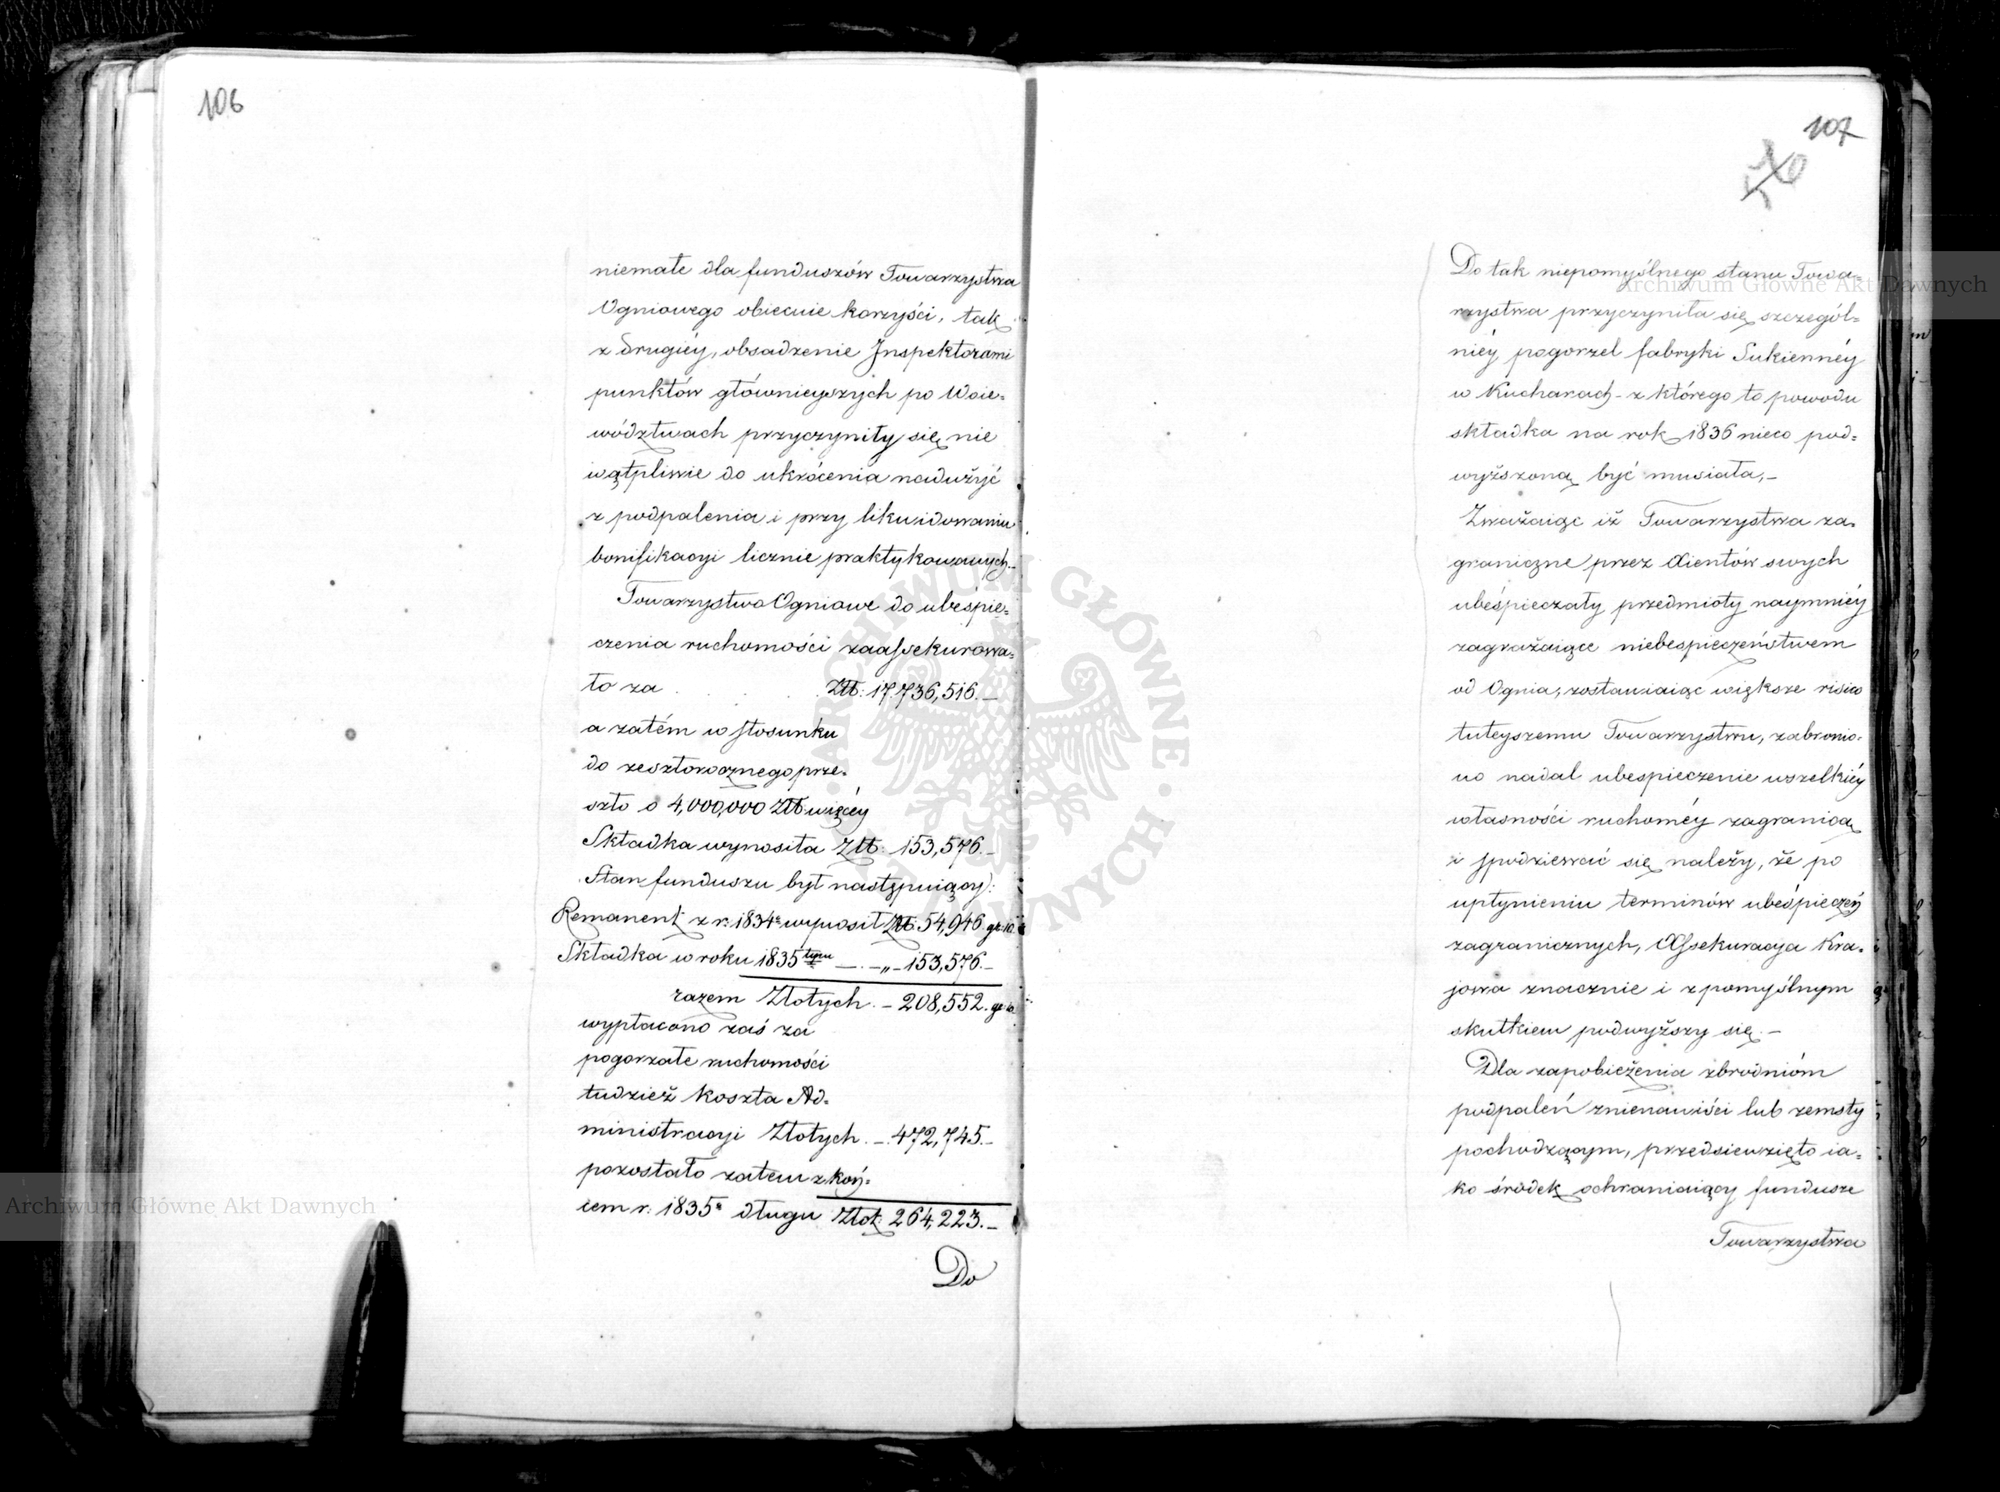 106
niemałe dla funduszów Towarzystwa
Ogniowego obiecuie korzyści, tak
z drugiéy, obsadzenie Inspektorami
punktów główniejszych po Woie=
wództwach przyczyniły się nie
wątpliwie do ukrócenia nadużyć
z podpalenia i przy likwidowaniu
bonifikacyi licznie praktykowanych.
Towarzystwo Ogniowe do ubeśpie=
czenia ruchomości zaassekurowa=
ło za . . . Złt: 17,736,516.—
a zatém w stosunku
do zeszłorocznego prze=
szło o 4,000,000 Złt: więcéy
Składka wynosiła Złt: 153,576.—
Stan funduszu był następuiący:
Remanent z r: 1834o wynosił Złt: 54,946. gr: 10.
Składka w roku 1835tym — . — „ — 153,576.—
razem Złotych. — 208,552. gr:
wypłacono zaś za
pogorzałe ruchomości
tudzież koszta Ad=
ministracyi Złotych. — 472,745.—
pozostało zatem z koń=
cem r: 1835o długu Złot: 264,223.—
Do
107
56
Do tak niepomyślnego stanu Towa=
rzystwa przyczyniła się szczegól=
niéy pogorzel fabryki Sukiennéy
w Kucharach — z którego to powodu
składka na rok 1836 nieco pod=
wyższoną być musiała,—
Zważaiąc iż Towarzystwa za=
graniczne przez Aientów swych
ubeśpieczały przedmioty naymniéy
zagrażaiące niebespieczeństwem
od Ognia, zostawiaiąc większe risico
tuteyszemu Towarzystwu, zabronio=
no nadal ubespieczenie wszelkiéy
własności ruchoméy zagranicą
i spodziewać się należy, że po
upłynieniu terminów ubeśpieczeń
zagranicznych, Assekuracya Kra=
jowa znacznie i z pomyślnym
skutkiem podwyższy się.—
Dla zapobieżenia zbrodnióm
podpaleń z nienawiści lub zemsty
pochodzącym, przedsiewzięto ia=
ko środek ochraniaiący fundusze
Towarzystwa
Archiwum Główne Akt Dawnych
Archiwum Główne Akt Dawnych
ARCHIWUM GŁÓWNE AKT DAWNYCH